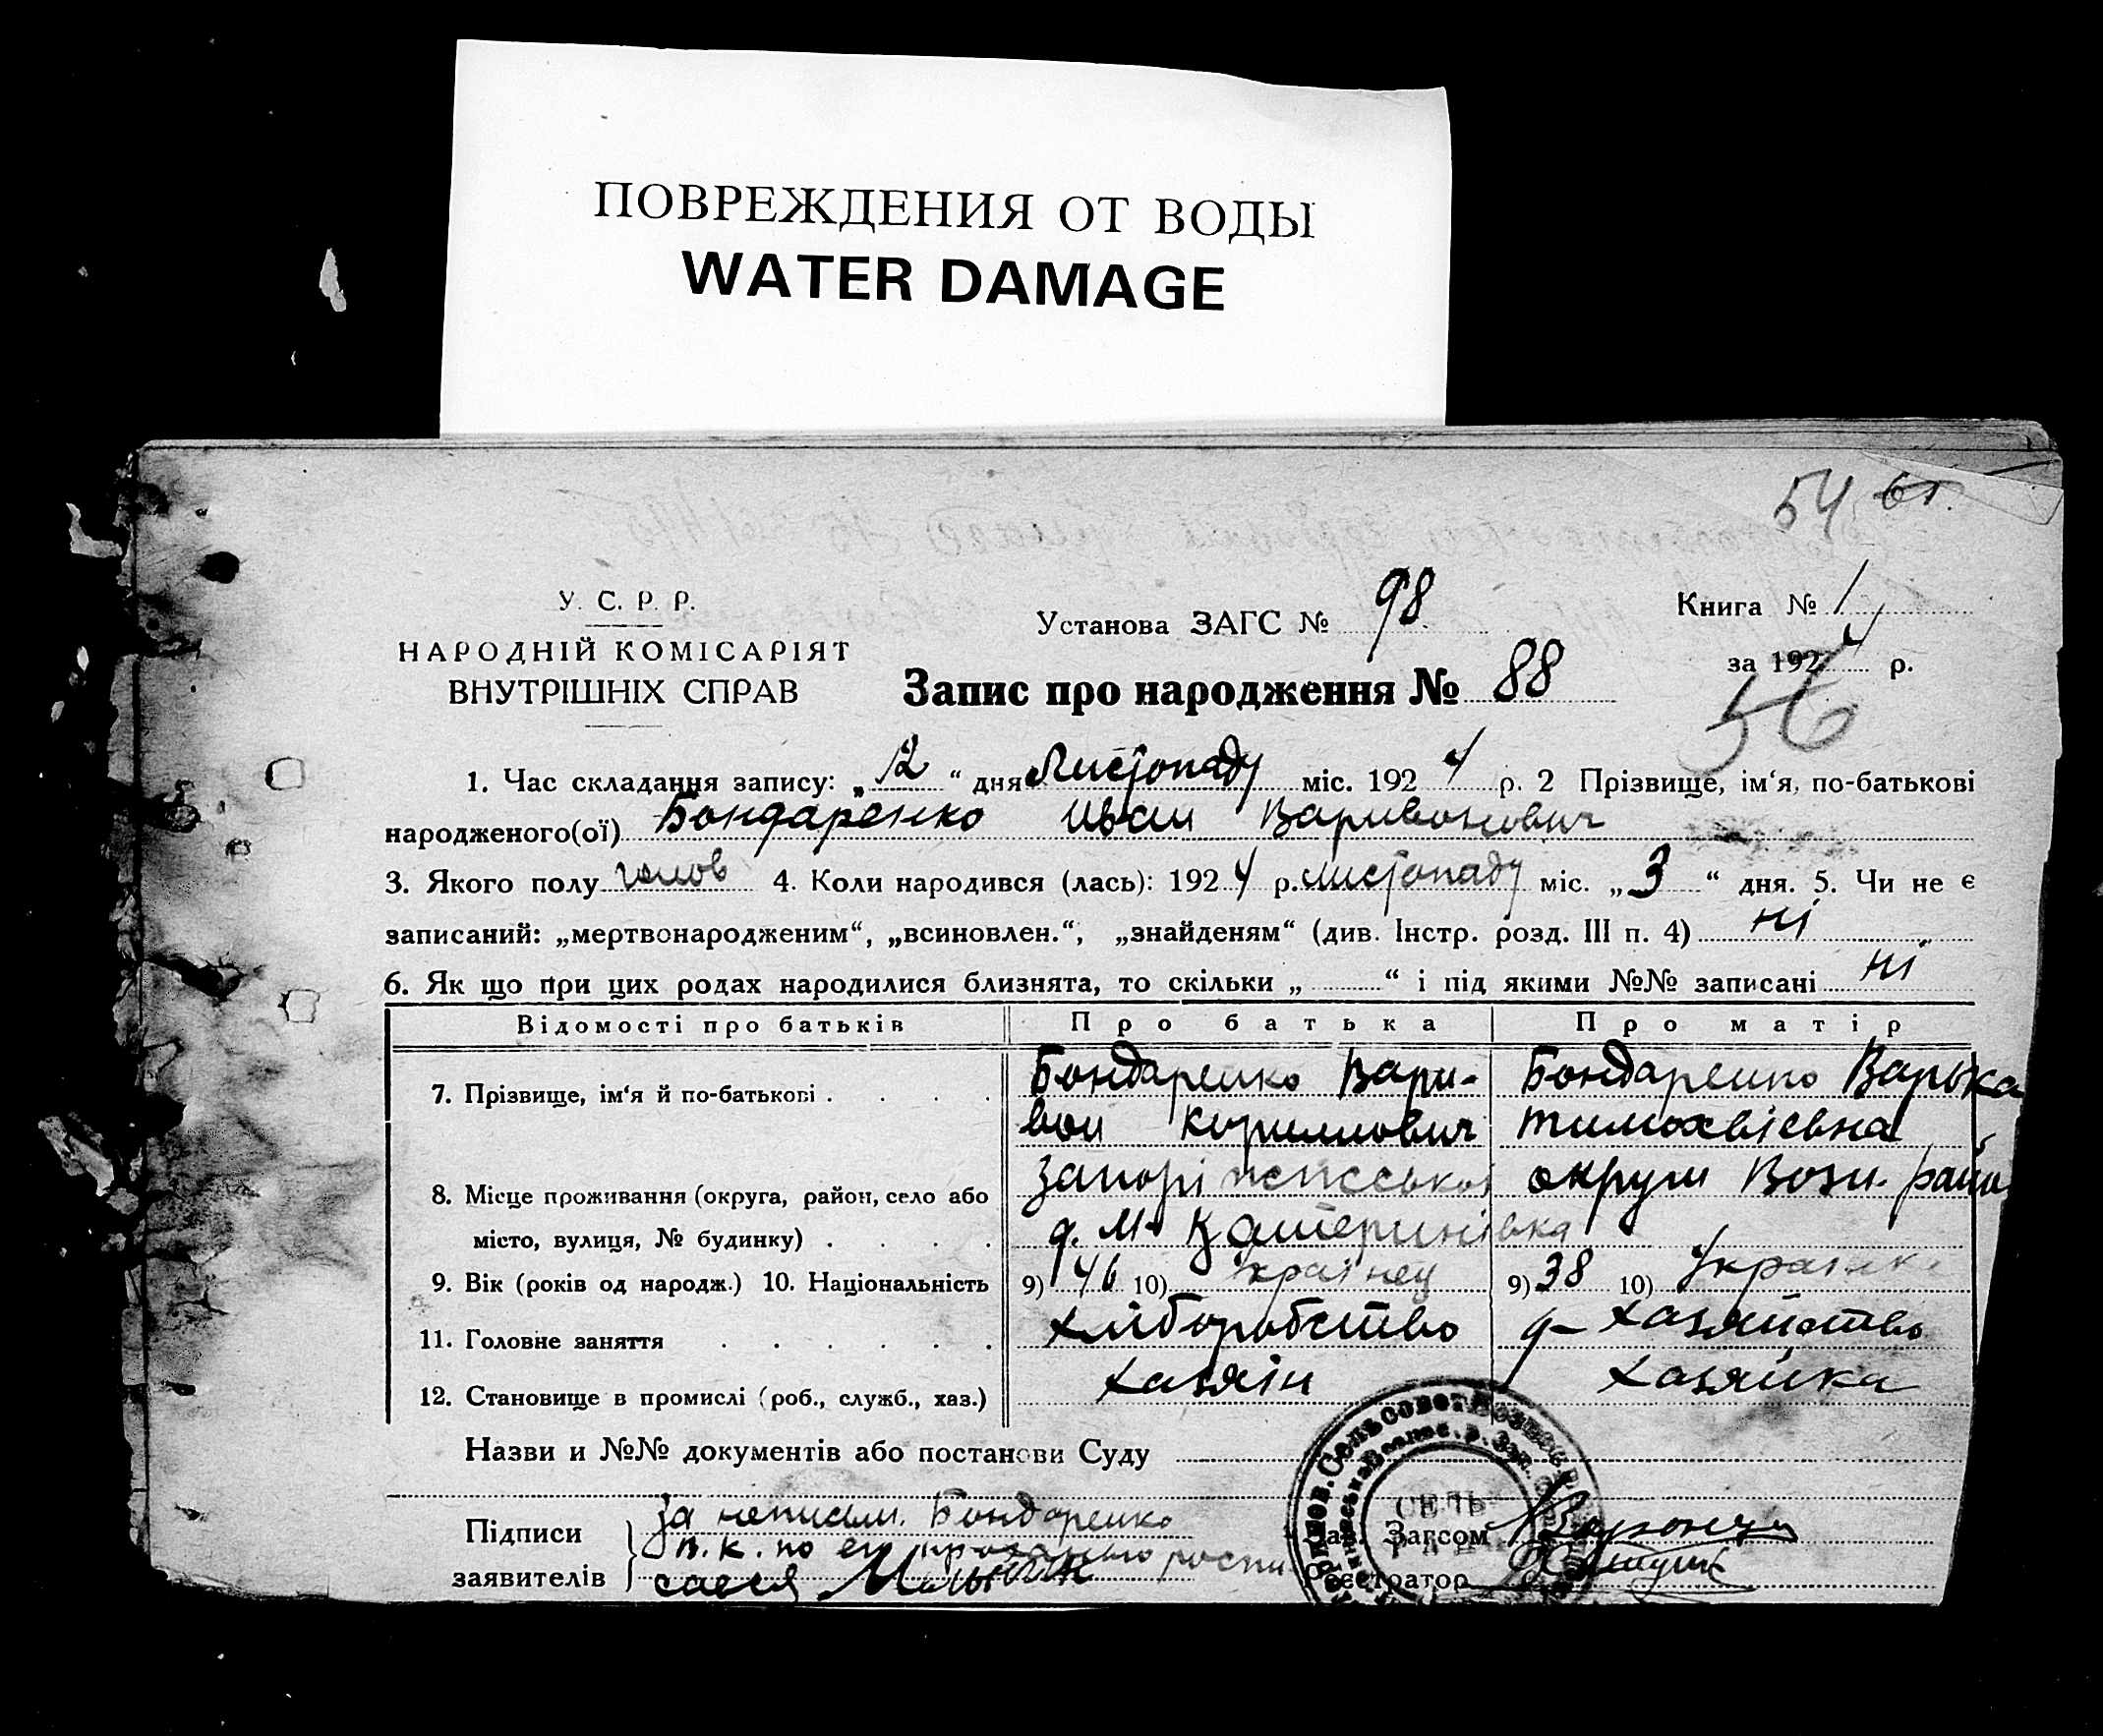 ПОВРЕЖДЕНИЯ ОТ ВОДЫ
WATER DAMAGE
54 61.
У. С. Р. Р.
НАРОДНІЙ КОМІСАРІЯТ
ВНУТРІШНІХ СПРАВ
Установа ЗАГС № 98
Запис про народження № 88
Книга № 1
за 1924 р.
56
1. Час складання запису: „12“ дня Листопаду міс. 1924 р. 2 Прізвище, ім‘я, по-батькові
народженого(ої) Бондаренко Иван Варивонович
3. Якого полу чолов 4. Коли народився (лась): 1924 р. листопаду міс. „3“ дня. 5. Чи не є
записаний: „мертвонародженим“, „всиновлен.“, „знайденям“ (див. Інстр. розд. III п. 4) ні
6. Як що при цих родах народилися близнята, то скільки „ “ і під якими №№ записані ні
Відомості про батьків Про батька Про матір
7. Прізвище, ім‘я й по-батькові . . . . Бондаренко Вари- Бондаренко Варька
вон Кириллович Тимохвіевна
8. Місце проживання (округа, район, село або Запоріжської округи Возн. райо
місто, вулиця, № будинку) . . . . д. М- Катеринівка
9. Вік (років од народж.) 10. Національність 9) 46 10) Українец 9) 38 10) Українка
11. Головне заняття . . . . . . хліборобство д- хазяйство
12. Становище в промислі (роб., служб., хаз.) хазяін хазяйка
Назви и №№ документів або постанови Суду
Підписи
заявителів
за неписьм. Бондаренко
В. К. по ег роспи
саеся
Зав. Загсом
Реєстратор
СЕЛЬ